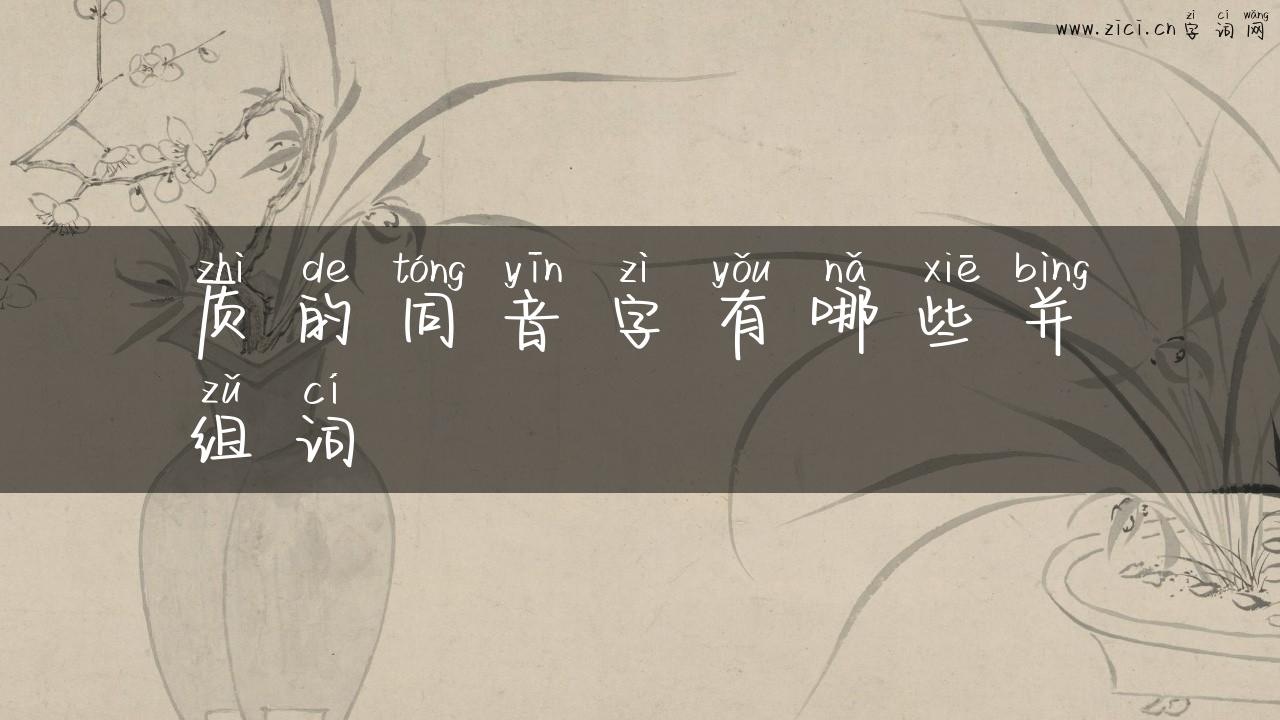 zì cí wǎng
www.zici.cn 字词网
zhì de tóng yīn zì yǒu nǎ xiē bìng
质的同音字有哪些并
zǔ cí
组词